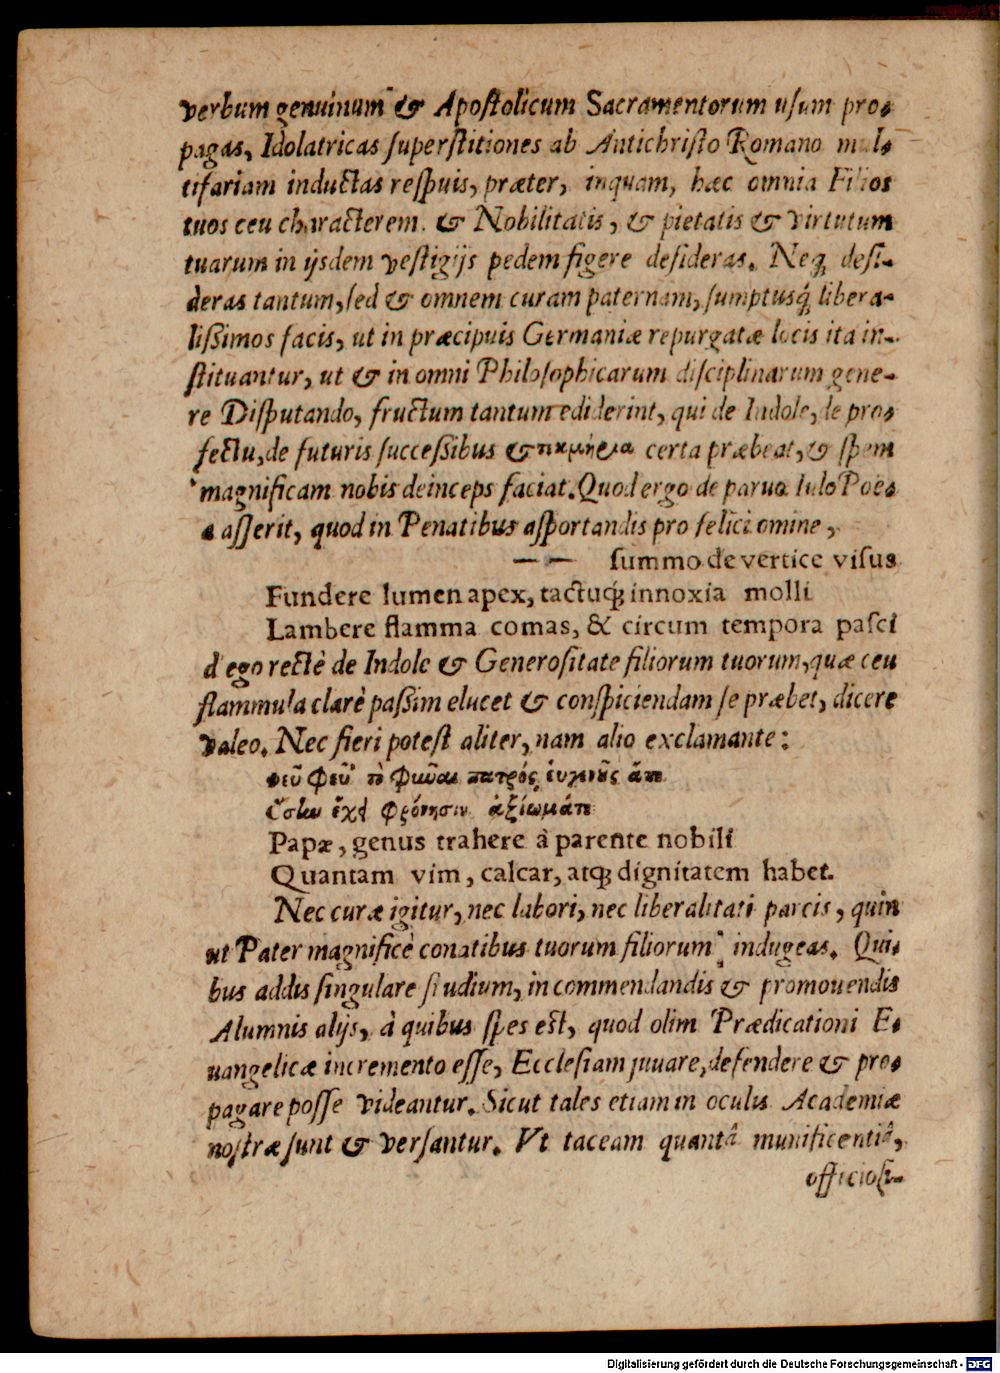 verbum genuinum & Apoſtolicum Sacramentorum uſum pro-
pagas, Idolatricas ſuperſtitiones ab Antichriſto Romano mul-
tifariam inductas reſpuis, præter, inquam, hæc omnia Filios
tuos ceu characterem. & Nobilitatis, & pietatis & virtutum
tuarum in ijsdem veſtigijs pedem figere deſideras. Neq; deſi-
deras tantum, ſed & omnem curam paternam, ſumptusq́; libera-
liſsimos facis, ut in præcipuis Germaniæ repurgatæ locis ita in-
ſtituantur, ut & in omni Philoſophicarum diſciplinarum gene-
re Diſputando, fructum tantum ediderint, qui de Indole, de pro-
fectu, de futuris ſucceſsibus & certa præbeat, & ſpem
magnificam nobis deinceps faciat. Quod ergo de paruo Iulo Poë-
a aſſerit, quod in Penatibus aſportandis pro felici omine,
— — ſummo de vertice viſus
Fundere lumen apex, tactuq́; innoxia molli
Lambere flamma comas, & circum tempora paſci
d ego rectè de Indole & Generoſitate filiorum tuorum, quæ ceu
flammula clarè paſsim elucet & conſpiciendam ſe præbet, dicere
valeo. Nec fieri poteſt aliter, nam alio exclamante:
φεῦ φεῦ τὸ φῦναι πατρὸς εὐγενοῦς ἄπο
ὅσην ἔχει φρόνησιν ἀξίωμά τε
Papæ, genus trahere à parente nobili
Quantam vim, calcar, atq; dignitatem habet.
Nec curæ igitur, nec labori, nec liberalitati parcis, quin
ut Pater magnificè conatibus tuorum filiorum indugeas. Qui-
bus addis ſingulare ſtudium, in commendandis & promouendis
Alumnis alijs, à quibus ſpes eſt, quod olim Prædicationi E-
uangelicæ incremento eſſe, Eccleſiam juuare, defendere & pro-
pagare poſſe videantur. Sicut tales etiam in oculis Academiæ
noſtræ ſunt & verſantur. Vt taceam quantâ munificentiâ,
officioſi-
Digitalisierung gefördert durch die Deutsche Forschungsgemeinschaft - DFG